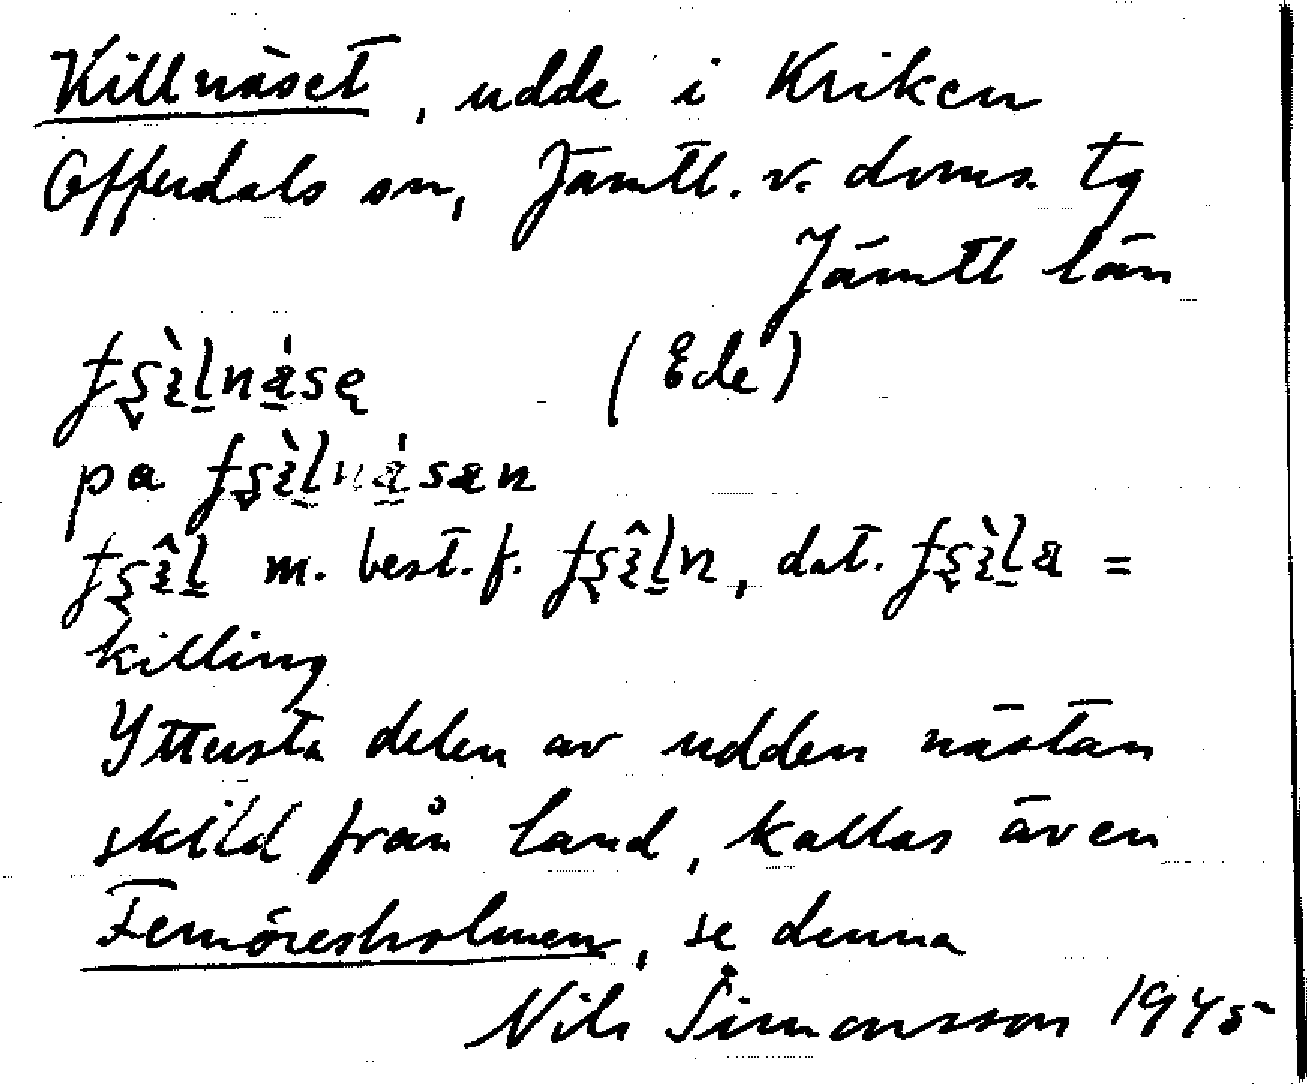 Killnäset, udde i Kriken
Offerdals sn, Jämtl. v. doms. tg
Jämtl län
(Ede)
pa
m. best. f. , dat. =
killing
Yttersta delen av udden nästan
skild från land, kallas även
Femöresholmen, se denna
Nils Simonsson 1945